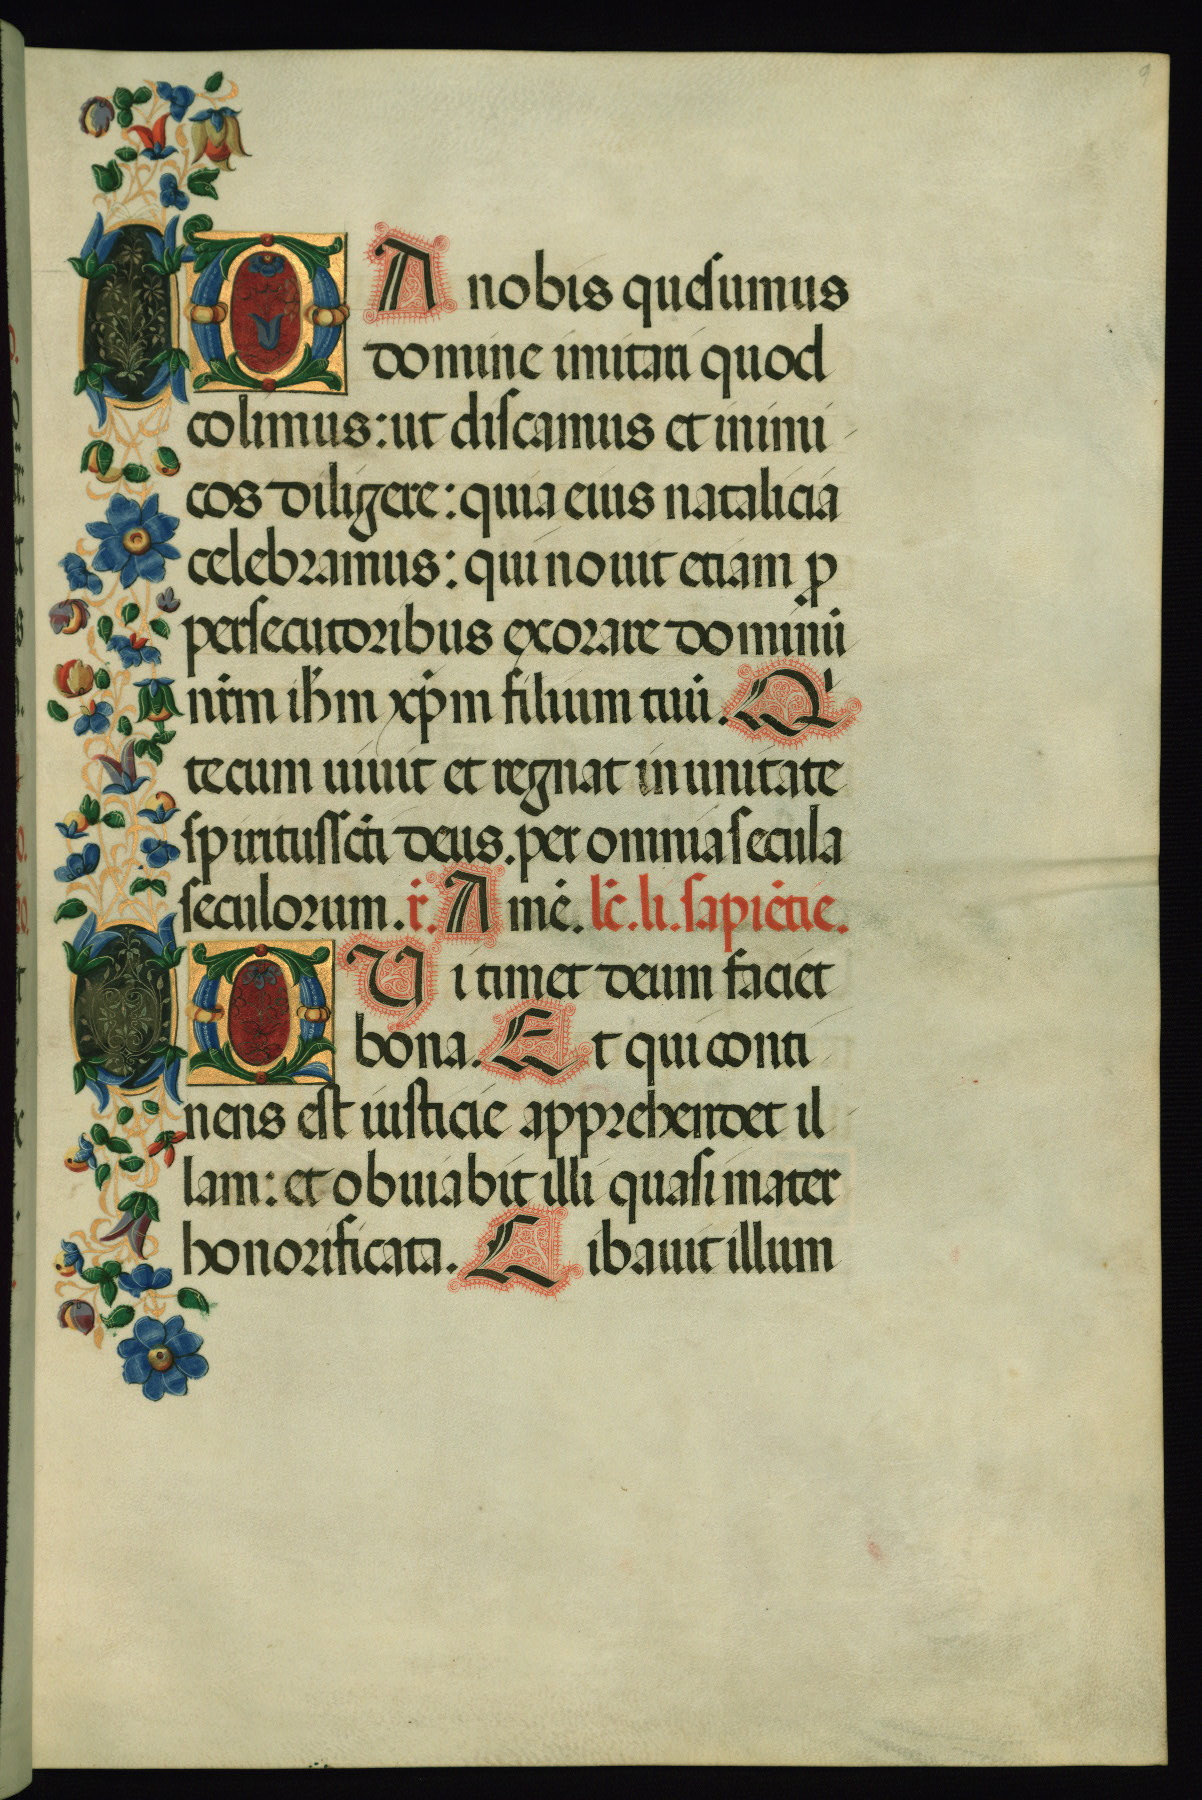 DA nobis quesumus
domine imitari quod
colimus: ut discamus et inimi
cos diligere: quia eius natalicia
celebramus: qui novit etiam ꝓ
persecutoribus exorare dominū
nr̄m ih̄m xp̄m filium tuū. Q
tecum vivit et regnat in unitate
spiritus sc̄ti deus. per omnia secula
seculorum. r̄. Amē. lc̄. li. sapiētie.
QVi timet deum faciet
bona. Et qui conti
nens est iusticie apprehendet il
lam: et obviabit illi quasi mater
honorificata. Cibavit illum
9